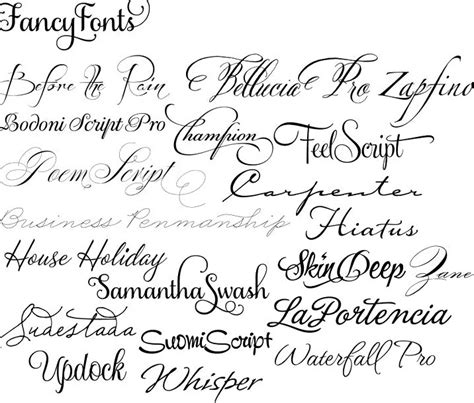 FancyFonts
Before the Rain Bellucia Pro Zapfino
Bodoni Script Pro Champion FeelScript
Poem Script Carpenter
Business Penmanship Hiatus
House Holiday SkinDeep Zane
SamanthaSwash LaPortencia
Sudestada SuomiScript Waterfall Pro
Updock Whisper